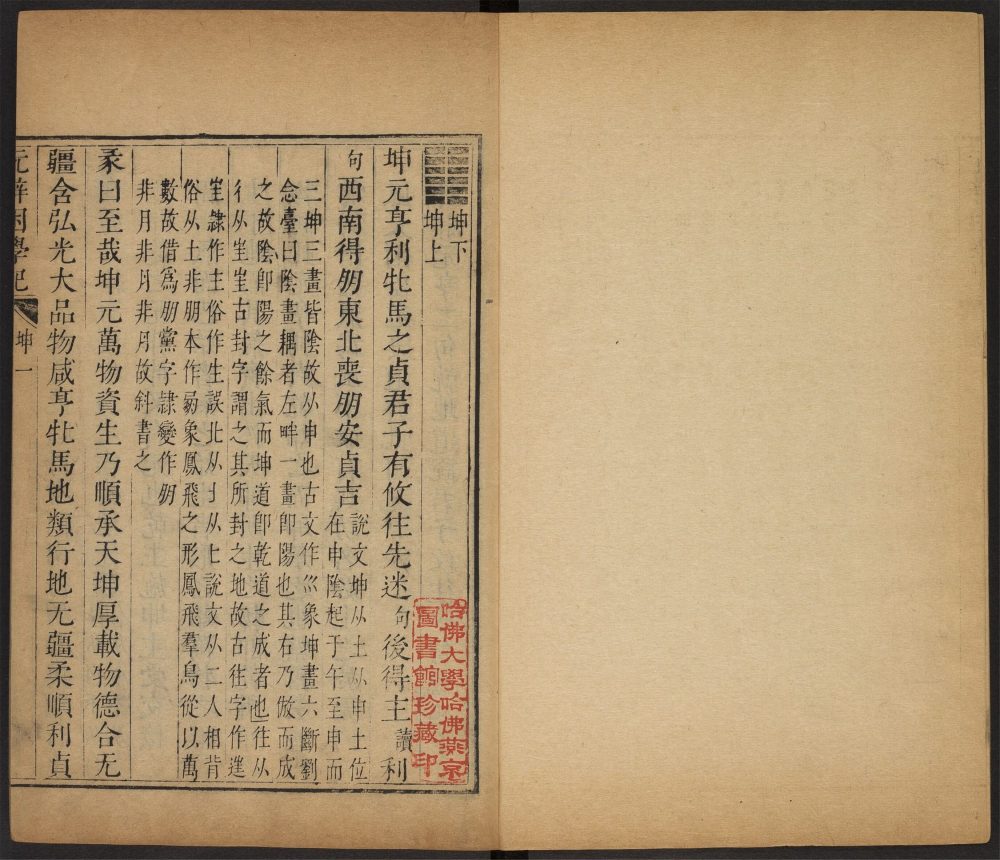 坤下
坤上
坤元亨利牝馬之貞君子有攸往先迷句後得主讀利
句西南得朋東北喪朋安貞吉說文坤从土从申土位
在申陰起于午至申而
三坤三畫皆陰故从申也古文作巛象坤畫六斷劉
念臺曰陰畫耦者左畔一畫卽陽也其右乃倣而成
之故陰卽陽之餘氣而坤道卽乾道之成者也往从
彳从㞷㞷古封字謂之其所封之地故古往字作𨓹
㞷隸作主俗作生誤北从丬从匕說文从二人相背
俗从土非朋本作𦐋象鳳飛之形鳳飛羣鳥從以萬
數故借爲朋黨字隸變作朋
非月非月非月故斜書之
彖曰至哉坤元萬物資生乃順承天坤厚載物德合无
疆含弘光大品物咸亨牝馬地類行地无疆柔順利貞
學記
坤
一
哈佛大學哈佛燕京
圖書館珍藏印